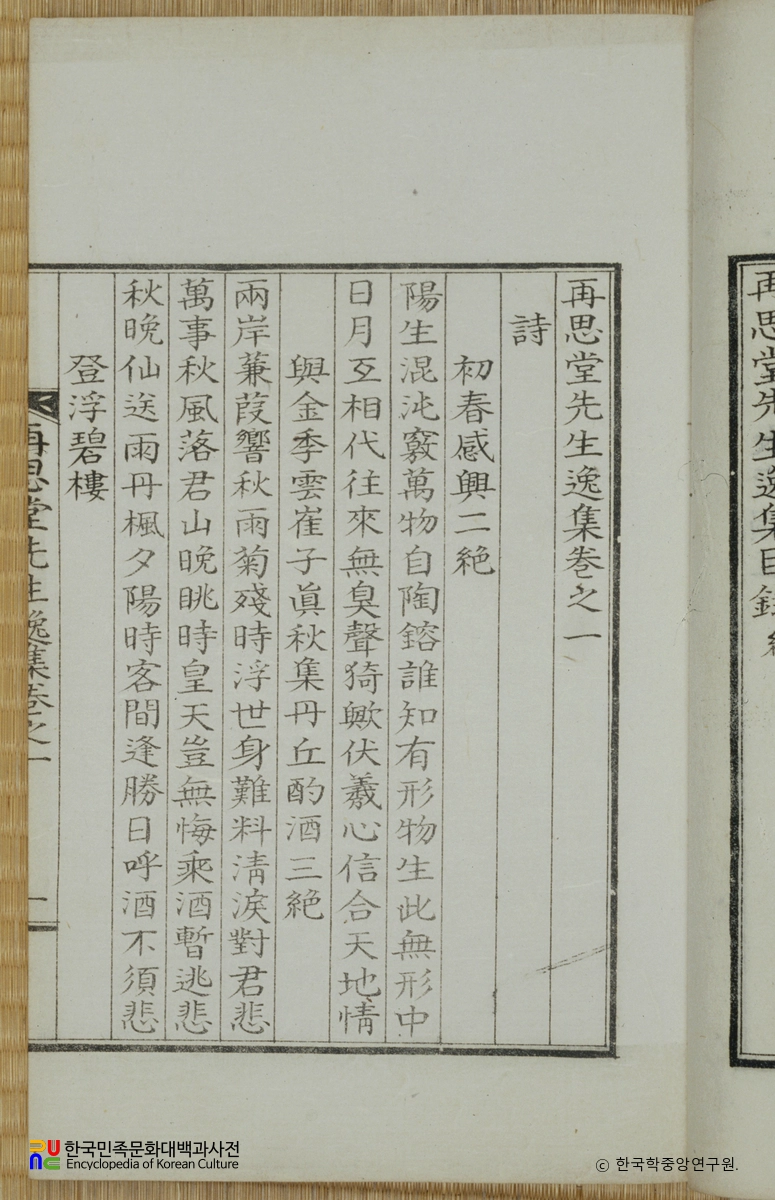 再思堂先生逸集目錄
再思堂先生逸集卷之一
詩
初春感興二絶
陽生混沌竅萬物自陶鎔誰知有形物生此無形中
日月互相代往來無臭聲猗歟伏羲心信合天地情
與金季雲崔子眞秋集丹丘酌酒三絶
兩岸蒹葭響秋雨菊殘時浮世身難料淸淚對君悲
萬事秋風落君山晩眺時皇天豈無悔乘酒暫逃悲
秋晩仙送雨丹楓夕陽時客間逢勝日呼酒不須悲
登浮碧樓
再思堂先生逸集卷之一
一
한국민족문화대백과사전
Encyclopedia of Korean Culture
© 한국학중앙연구원.